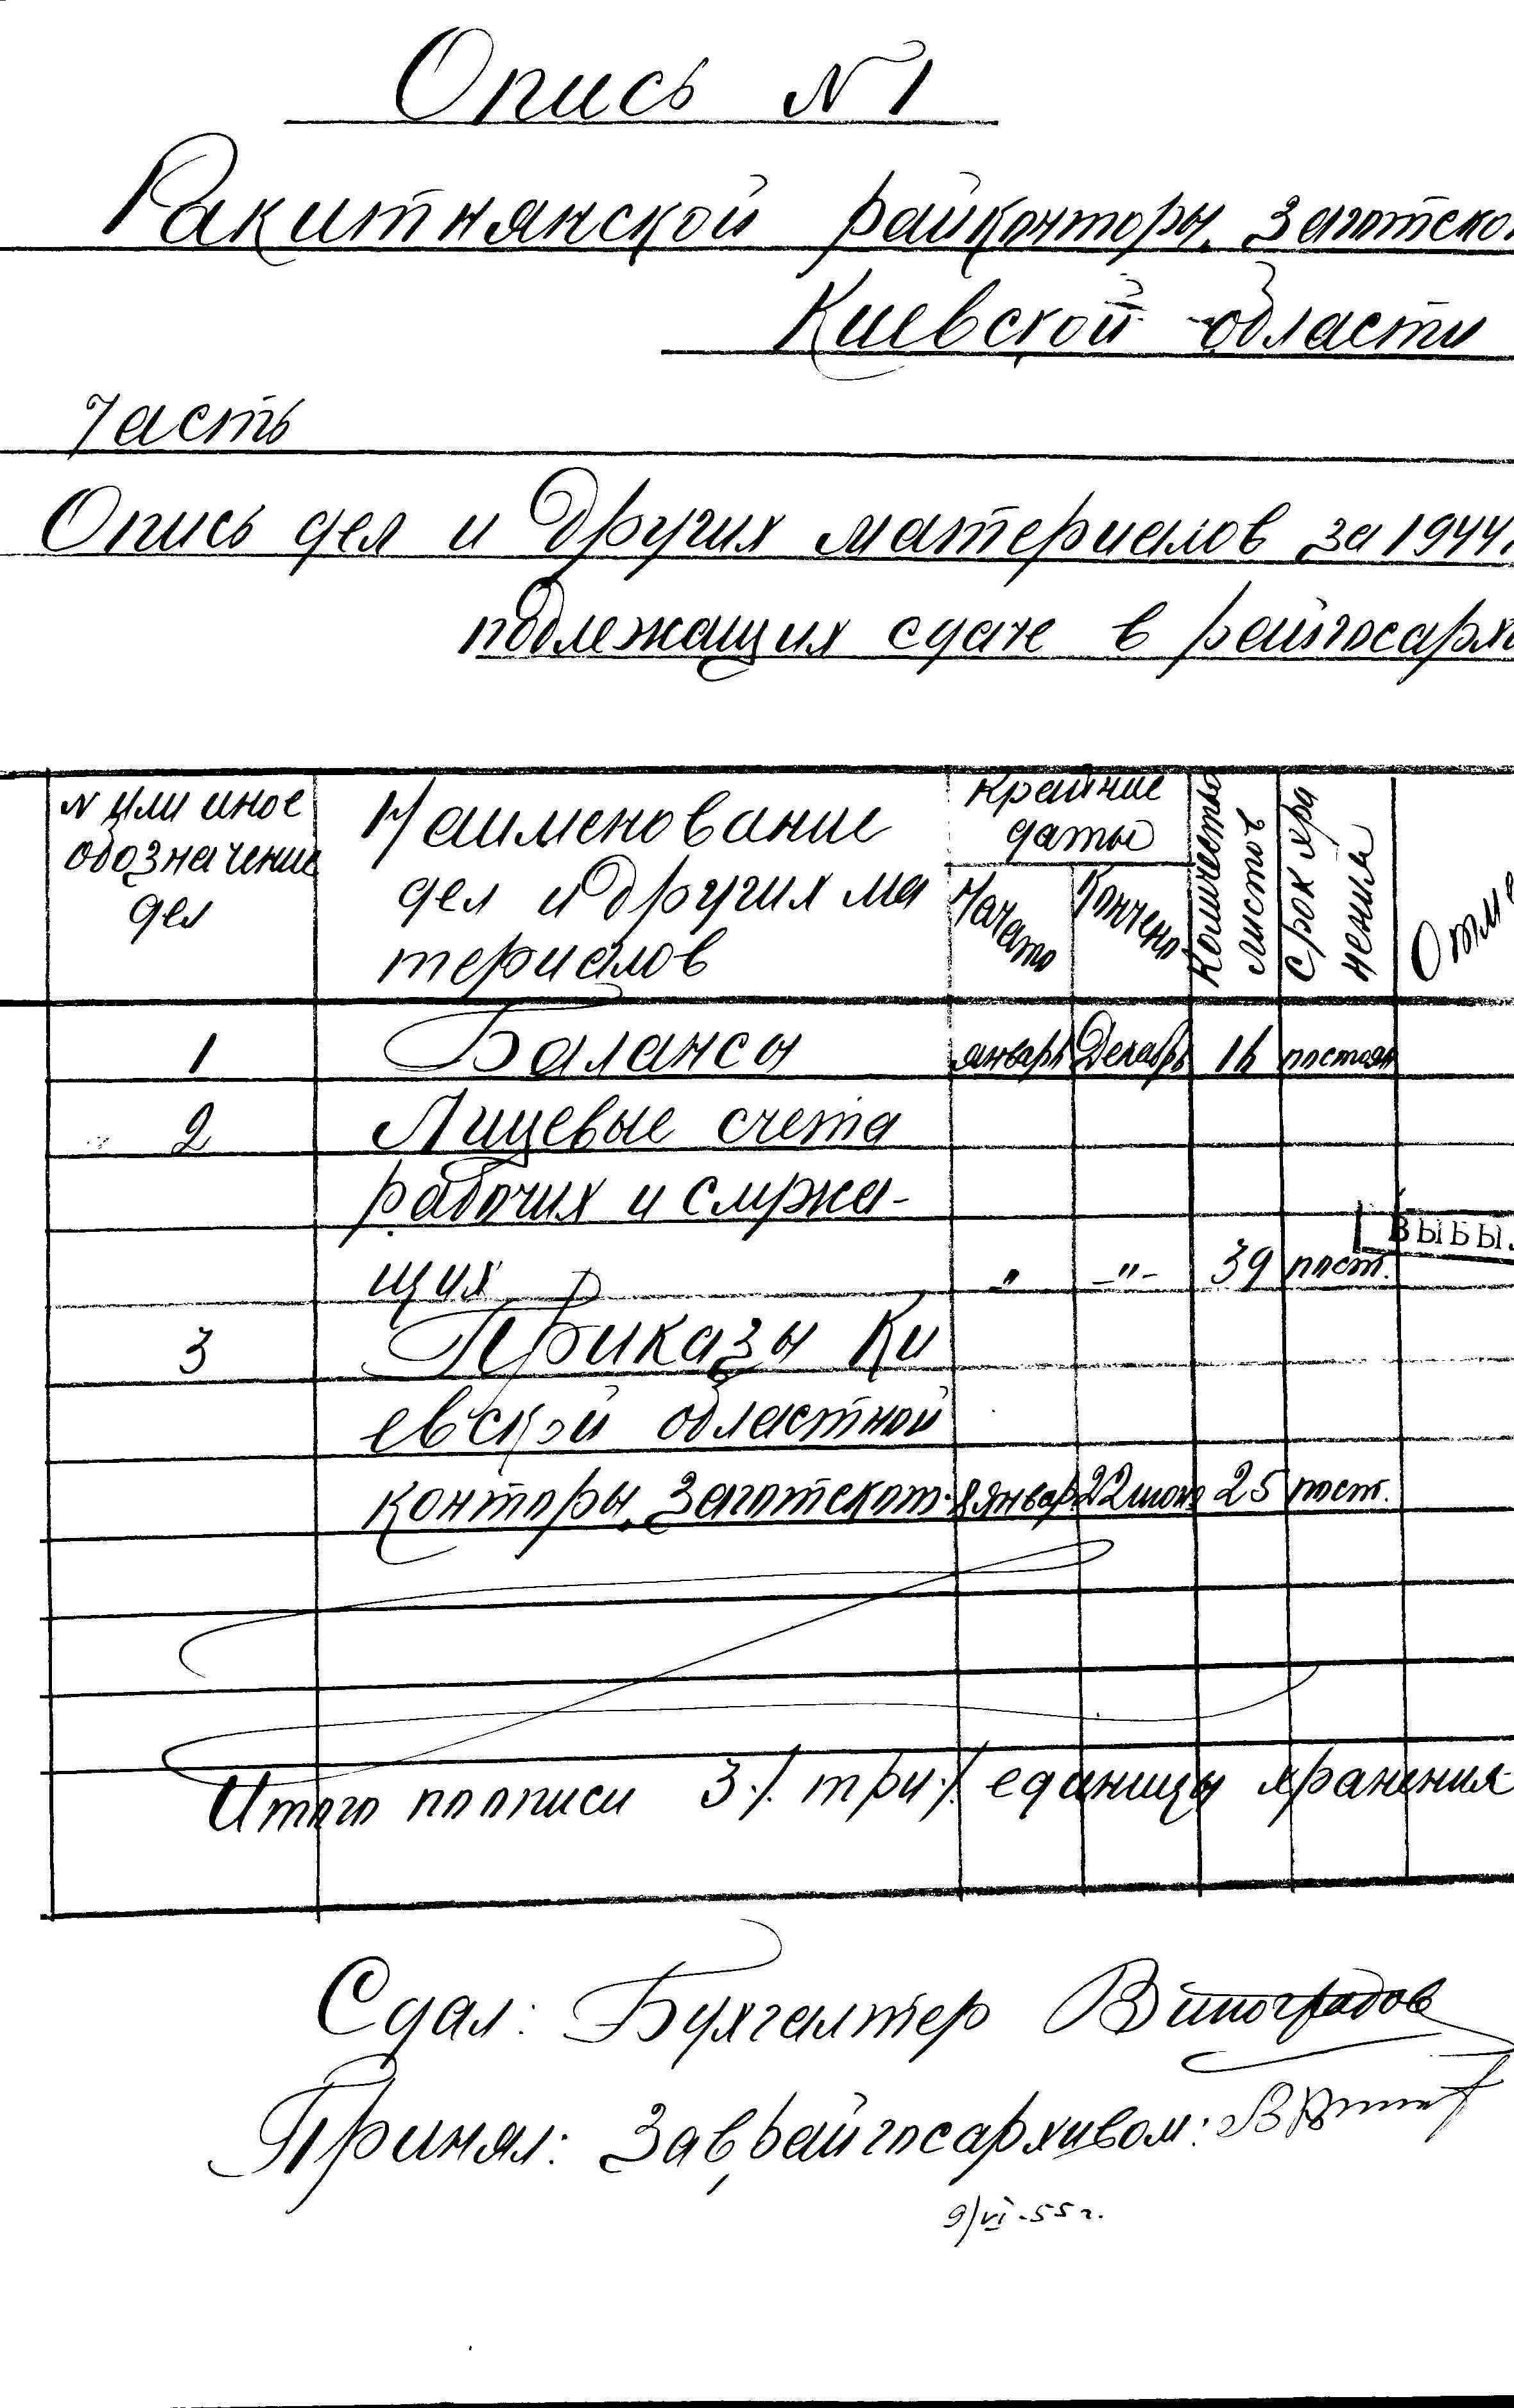 Опись N 1
Ракитнянской райконторы Заготско
Киевской области
Часть
Опись дел и других материалов за 1944
подлежащих сдаче в райгосархи
N или иное
обозначение
дел
Наименование
дел и других ма
териалов
Крайние
даты
Начато
Кончено
Количество
листов
Срок хра
нения
Отме
1 Балансы январь Декабрь 16 постоян
2 Лицевые счета
рабочих и служа-
щих " -"- 39 пост.
ВЫБЫ
3 Приказы Ки
евской областной
конторы Заготскот. 8 январ 22 июня 25 пост.
Итого по описи 3 /.три./ единицы хранения
Сдал: Бухгалтер Виноградов
Принял: Зав райгосархивом:
9/VI-55 г.